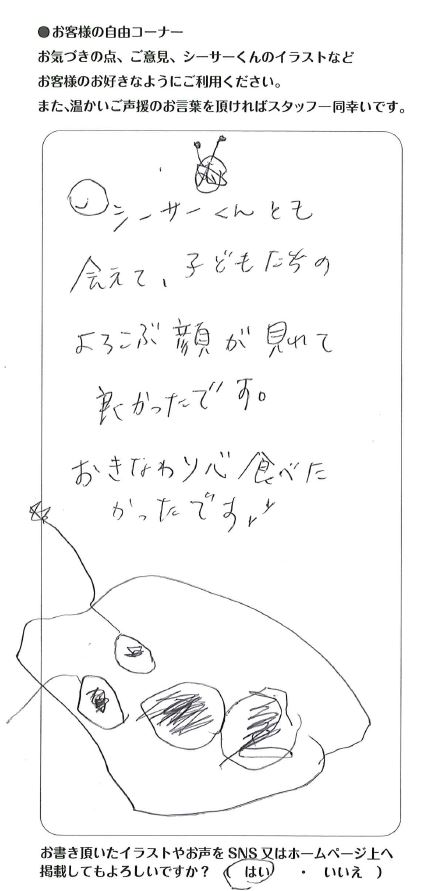 ●お客様の自由コーナー
お気づきの点、ご意見、シーサーくんのイラストなど
お客様のお好きなようにご利用ください。
また、温かいご声援のお言葉を頂ければスタッフ一同幸いです。
シーサーくんとも
会えて、子どもたちの
よろこぶ顔が見れて
良かったです。
おきなわソバ食べた
かったです
お書き頂いたイラストやお声をSNS又はホームページ上へ
掲載してもよろしいですか？（ はい ・ いいえ ）